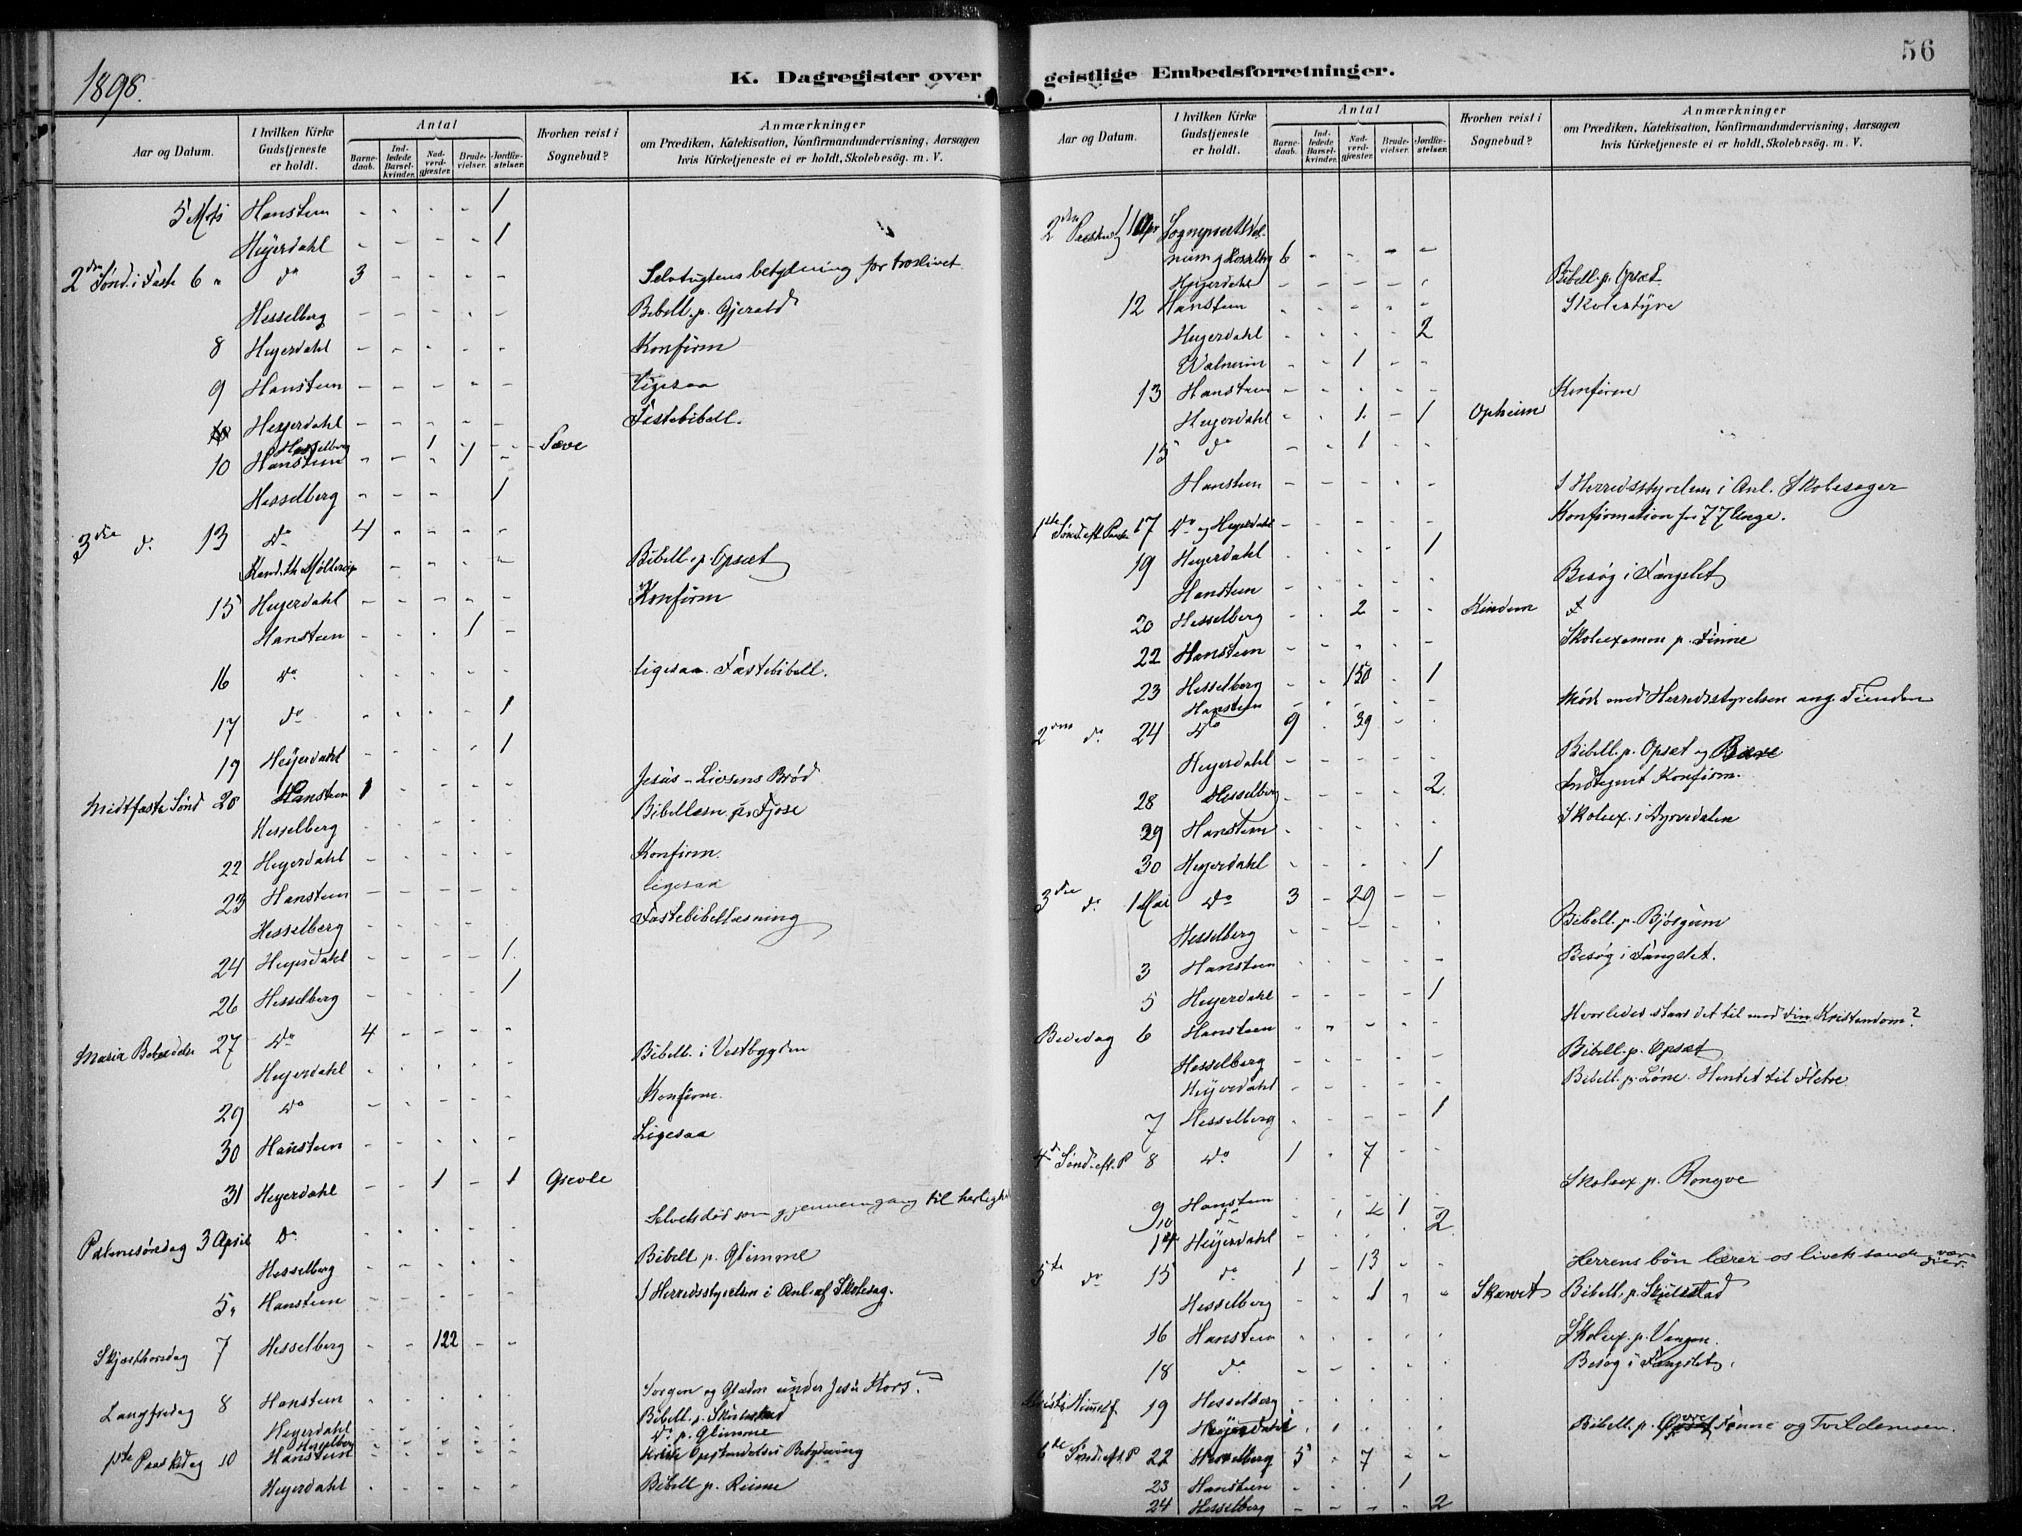 1898.
K. Dagregister over
Aar og Datum.
I hvilken Kirke Gudstjeneste er holdt.
Antal
Barnedaab.
Indledede Barselkvinder.
Nadverdgjæster.
Brudevielser.
Jordfæstelser.
Hvorhen reist i Sognebud?
Anmærkninger
om Prædiken, Katekisation, Konfirmandundervisning, Aarsagen
hvis Kirketjeneste ei er holdt, Skolebesøg. m. V.
5 Hansteen - - - - 1
Heyerdahl - - - - 1
2den Sønd. i Faste 6 " do 3 - - - - Selvtugtens betydning for troslivet
Hesselberg - - - - - Bibell. p. Gjerald
8 Heyerdahl - - - - - Konfirm
9 Hansteen - - - - - ligesaa
Heyerdahl - - - - - Fastebibell.
Hesselberg - - 1 - - Sæve
10 Hansteen - - - 1 -
Hesselberg - - - - 1
3die do 13 do 4 - - - -
Kand. th. - - - - Bibell. p. Opsæt
15 Heyerdahl - - - - - Konfirm
Hansteen - - - 1 -
16 do - - - - - ligesaa. Fastebibell.
17 do - - - - 1
19 Heyerdahl - - - - 1
Midtfaste Sønd 20 Hansteen 1 - - - - Jesus - Livsens Brød
Hesselberg - - - - - Bibellæsn. p. Fjose
22 Heyerdahl - - - - - Konfirm.
23 Hansteen - - - - - ligesaa
Hesselberg - - - - - Fastebibellæsning
24 Heyerdahl - - - - 1
26 Hesselberg - - - - 1
Maria 27 do 4 - - - -
Heyerdahl - - - - - Bibell. i Vestbygden
29 do - - - - - Konfirm.
30 Hansteen - - - - - Ligesaa
31 Heyerdahl - - 1 - 1
Palmesøndag 3 April do - - - - - som gjennemgang til
Hesselberg - - - - - Bibell p. Glimme
5 " Hansteen - - - - - I Herredsstyrelsen i Anl. af Skolesag.
Skjærthorsdag 7 Hesselberg - - 122 - -
Langfredag 8 Hansteen - - - - - Sorgen og Glæden under Jesu Kors.
Heyerdahl - - - - - Bibell. p.
Hesselberg - - - - - do p. Glimme
1ste Paaskedag 10 Hansteen - - - - - Opstandelses Betydning
Heyerdahl - - - - - Bibell p. Reime
56
geistlige Embedsforretninger.
Aar og Datum.
I hvilken Kirke Gudstjeneste er holdt.
Antal
Barnedaab.
Indledede Barselkvinder.
Nadverdgjæster.
Brudevielser.
Jordfæstelser.
Hvorhen reist i Sognebud?
Anmærkninger
om Prædiken, Katekisation, Konfirmandundervisning, Aarsagen
hvis Kirketjeneste ei er holdt, Skolebesøg. m. V.
2den 11 Apr
6 - - - -
Heyerdahl - - - - - Bibell. p. Opsæt
12 Hansteen - - - - - Skolestyre
Heyerdahl - - - - 2
- - 1 - -
13 Hansteen - - - - - Konfirm
Heyerdahl - - 1 - 1 Opheim
15 do - - 1
Hansteen - - - - - I Herredsstyrelsen i Anl. Skolesager
1ste Sønd. eft. Paaske 17 do og Heyerdahl - - - - - Konfirmation for 77 Unge.
19 Heyerdahl - - - - 1
Hansteen - - - - - Besøg i Fængslet
20 Hesselberg - - 2 - - Kindem
22 Hansteen - - - - - Skoleexamen p. Finne
23 Hesselberg - - 150 - 1
Hansteen - - - - - Møde med Herredsstyrelsen ang.
2den do 24 do 9 - 39 - -
Heyerdahl - - - - - Bibell. p. Opsæt og
28 Hesselberg - - - - 2. Indtegnet Konfirm.
29 Hansteen - - - - - Skoleex. i Dyrvedalen
30 Heyerdahl - - - - 1
3die do 1 Mai do 3 - 29 - -
Hesselberg - - - - - Bibell. p. Bjørgum
3 Hansteen - - - - - Besøg i Fængslet.
5 Heyerdahl - - - - 1
Bededag 6 Hansteen - - - - - Hvorledes staar det til med din Kristendom?
Hesselberg - - - - - Bibell. p. Opsæt
Heyerdahl - - - - - Bibell. p. Løne. Hentet til
7 Hesselberg - - - - 1
4de Sønd. eft. P 8 do 1 - 7 - -
9 Hansteen - - - 1 - Skoleex p. Rongve
10 do - - - - 2
14 Heyerdahl - - - -
5te do 15 do 1 - 13 - - Herrens bøn lærer os livets sande værdier.
Hesselberg - - 1 - - Bibell. p.
16 Hansteen - - - - - Skoleex. p. Vangen.
18 do - - - - - Besøg i Fængslet.
Kristi Himmelf. 19 Hesselberg - - - - -
Heyerdahl - - - - - Bibell. p. Finne og Tvildemoen.
6te Sønd. eft. P 22 Hesselberg 5 - 7 - -
23 Hansteen 1
24 Hesselberg - - - - 2